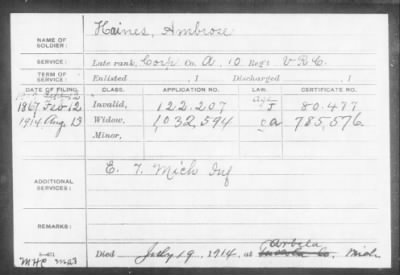 NAME OF SOLDIER: Haines, Ambrose
SERVICE: Late rank, Corp Co. A, 10 Reg't V.R.C.
TERM OF SERVICE: Enlisted , 1 Discharged , 1
DATE OF FILING. CLASS. APPLICATION NO. LAW. CERTIFICATE NO.
1867 Feb 12 Invalid, 122.207 J 80.477
1914 Aug 13 Widow, 1032,594 ca 785,576
Minor,
ADDITIONAL SERVICES: E. 7. Mich Inf
REMARKS:
Arbela
Died July 19, 1914, at Tuscola Co. Mich
3-401
MHC